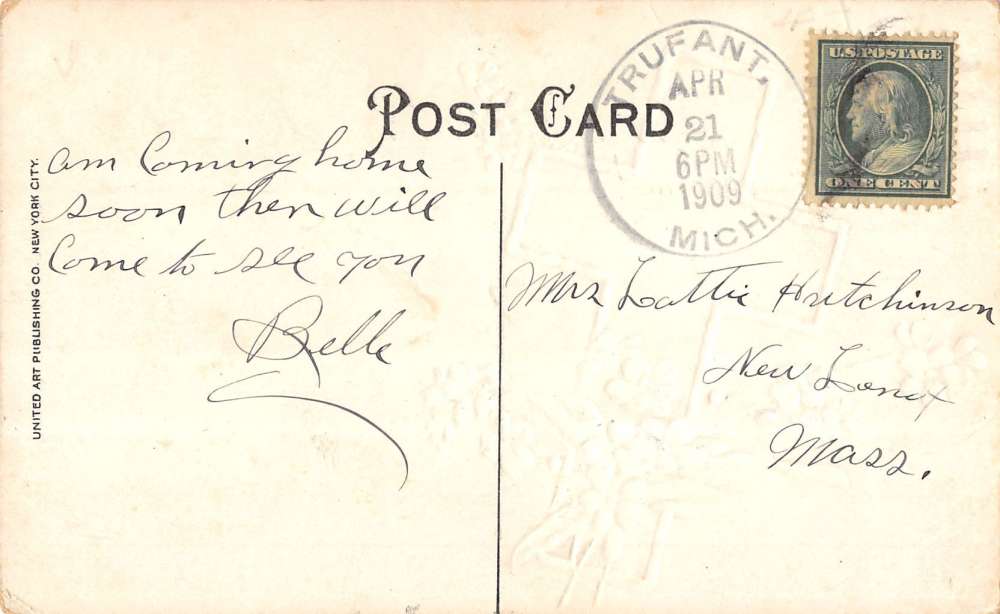 POST CARD
TRUFANT,
APR
21
6PM
1909
MICH.
U.S. POSTAGE
ONE CENT
am Coming home
soon then will
Come to see you
Belle
Mrs Lottie Hutchinson
New Lenox
Mass.
UNITED ART PUBLISHING CO. NEW YORK CITY.